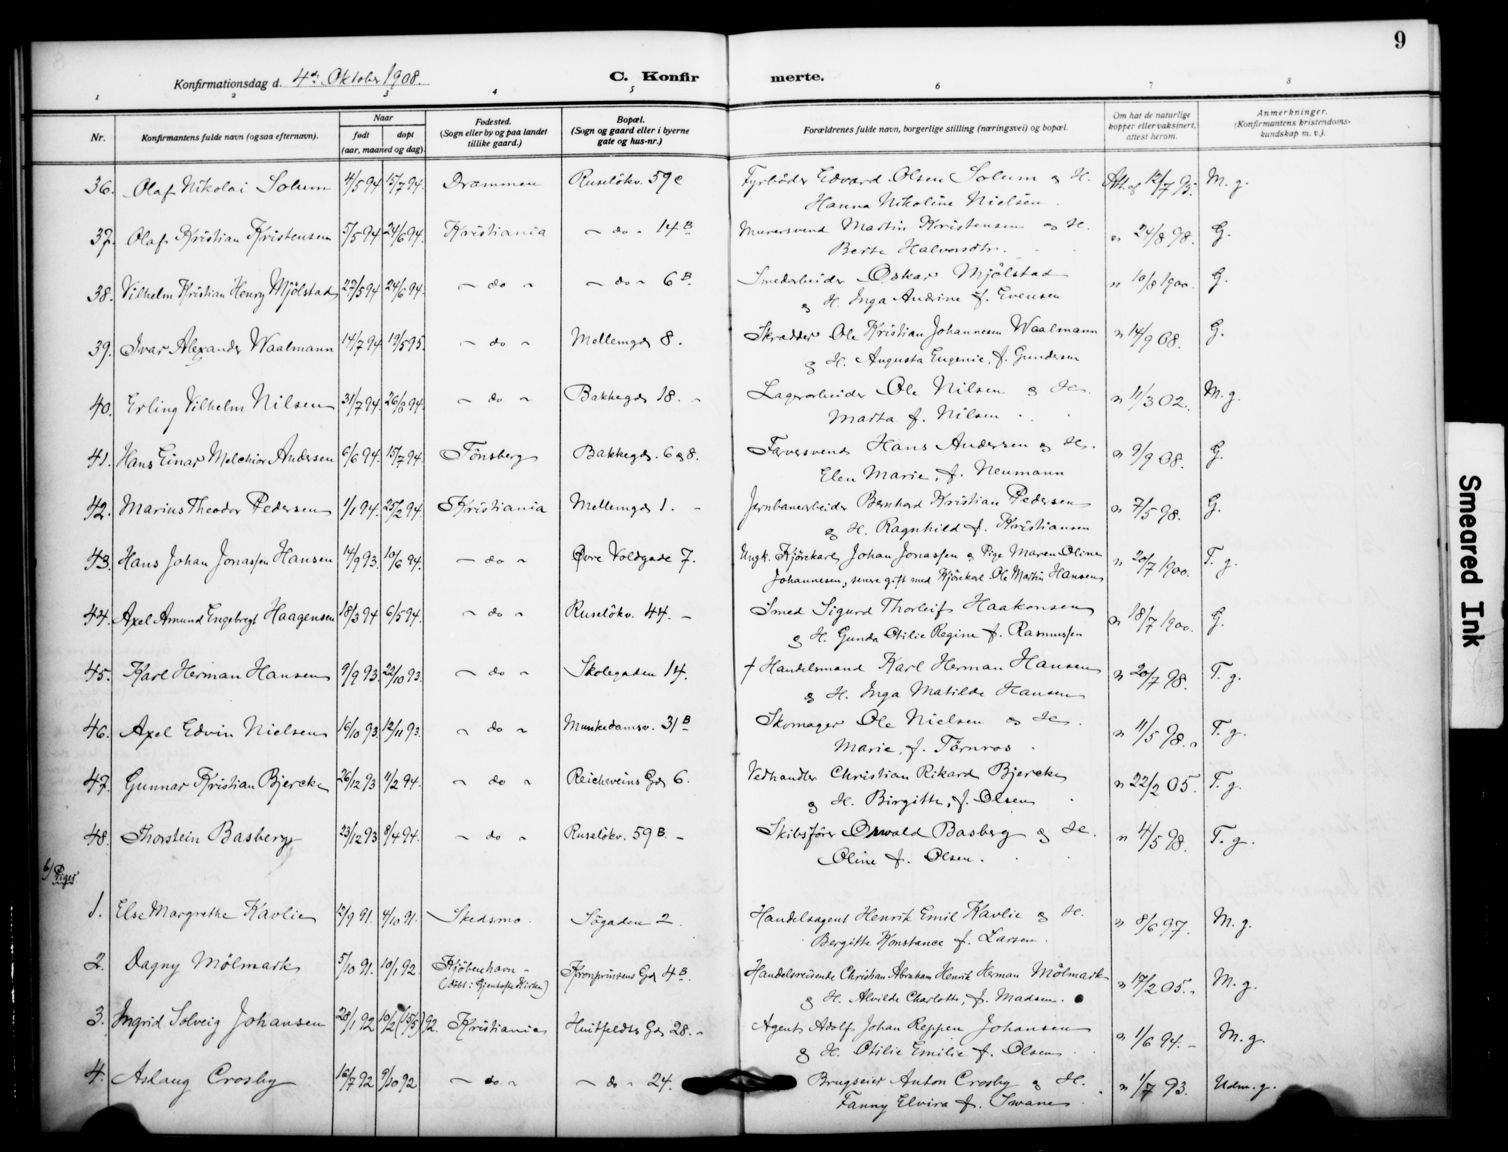 9
Konfirmationsdag d. 4de Oktober 1908.
C. Konfirmerte.
1 2 3 4 5 6 7 8
Nr.
Konfirmantens fulde navn (ogsaa efternavn).
Naar
født
døpt
(aar, maaned og dag).
Fødested.
(Sogn eller by og paa landet
tillike gaard.)
Bopæl.
(Sogn og gaard eller i byerne
gate og hus-nr.)
Forældrenes fulde navn, borgerlige stilling (næringsvei) og bopæl.
Om hat de naturlige
kopper eller vaksinert,
attest herom.
Anmerkninger.
(Konfirmantens kristendoms-
kundskap m. v.).
36. Olaf Nikolai Solum 4/5 94 15/7 94. Drammen Ruseløkv. 59c Fyrbøder Edvard Olsen Solum og H. Att. af 12/7 95. M. g.
Hanna Nikoline Nielsen.
37. Olaf Kristian Kristensen 5/5 94 24/6 94. Kristiania - do - 14 B Murersvend Martin Kristensen og H. " 24/8 98. G.
Berte Halvorsdtr.
38. Vilhelm Kristian Henry Mjölstad 22/5 94 24/6 94. - do " - do - 6 B. Smedarbeider Oskar Mjölstad " 10/8 1900. G.
og H. Inga Andrine f. Evensen
39. Ivar Alexander Waalmann 14/7 94 19/5 95. - do " Mellemgd. 8. Skrædder Ole Kristian Johannesen Waalmann " 14/9 08. G.
og H. Augusta Eugenie, f. Gundersen
40. Erling Vilhelm Nilsen 31/7 94. 26/8 94. - do " Bakkegd. 18. - Lagerarbeider Ole Nilsen og H. " 11/3 02. M. g.
Marta f. Nilsen
41. Hans Einar Melchior Andersen 6/6 94. 15/7 94. Tönsberg Bakkegd. 6 og 8. Farversvend Hans Andersen og H. " 9/9 08. G.
Elen Marie, f. Neumann
42. Marius Theodor Pedersen 1/1 94. 25/2 94. Kristiania Mellemgd. 1. - Jernbanearbeider Bernhard Kristian Pedersen " 7/5 98. G.
og H. Ragnhild f. Kristiansen
43. Hans Johan Jonassen Hansen 14/9 93. 10/6 94. - do " Øvre Voldgade 7. Ungk. Kjörekarl Johan Jonassen og Pige Maren Oline " 20/7 1900. T. g.
Johannesen, senere gift med Kjörekarl Ole Martin Hansen
44. Axel Amund Engebregt Haagensen 18/3 94 6/5 94. - do " Ruselökv. 44. - Smed Sigurd Thorleif Haakonsen " 18/7 1900. G.
og H. Gunda Otilie Regine f. Rasmussen
45. Karl Herman Hansen 9/9 93. 22/10 93. - do " Skolegaden 14. † Handelsmand Karl Herman Hansen " 20/7 98. T. g.
og H. Inga Matilde Hansen
46. Axel Edvin Nielsen 16/10 93. 12/11 93. - do " Munkedamsv. 31 B Skomager Ole Nielsen og H. " 11/5 98. " T. g.
Marie, f. Törnros.
47. Gunnar Kristian Bjercke 26/12 93 11/2 94. - do " Reichweins Gd. 6. Vedhandler Christian Rikard Bjercke " 22/2 05. T. g.
og H. Birgitte, f. Olsen
48. Thorstein Basberg 23/12 93 8/4 94. - do " Ruselökv. 59 B. - Skibsfører Oswald Basberg og H. " 4/5 98. T. g.
Oline f. Olsen.
b/ Piger
1. Else Margrethe Kavlie 12/9 91. 4/10 91. Skedsmo. Søgaden 2. Handelsagent Henrik Emil Kavlie og H. " 8/6 97. M. g.
Bergitte Konstance f. Larsen.
2. Dagny Mölmark 5/10 91. 10/1 92 Kjöbenhavn - Kronprinsens Gd. 4 B. Handelsreisende Christian Abraham Henrik Herman Mölmark " 17/2 05. " M. g.
(döbt: Gjentofte Kirke) og H. Alvilde Charlotte, f. Madsen.
3. Ingrid Solveig Johansen 28/1 92 10/2 (15/5) 92. Kristiania Huitfeldts Gd. 28. - Agent Adolf Johan Reppen Johansen " 1/6 94. - M. g.
og H. Otilie Emilie f. Olsen
4. Aslaug Crosby 16/7 92 9/10 92 - do " - do " 24. Brugseier Anton Crosby og H. " 1/7 93. Udm. g.
Fanny Elvira f. Swane
Smeared Ink